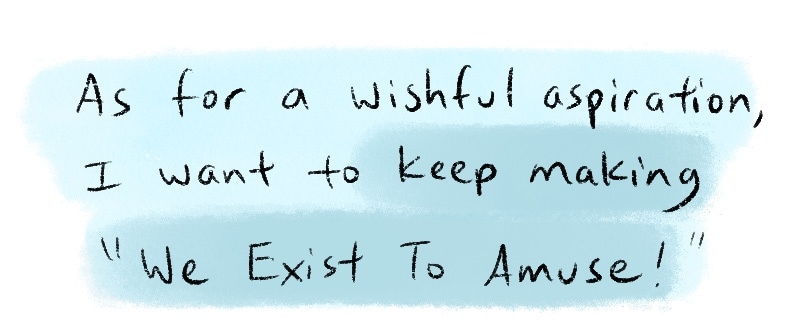 As for a wishful aspiration,
I want to keep making
"We Exist To Amuse!"